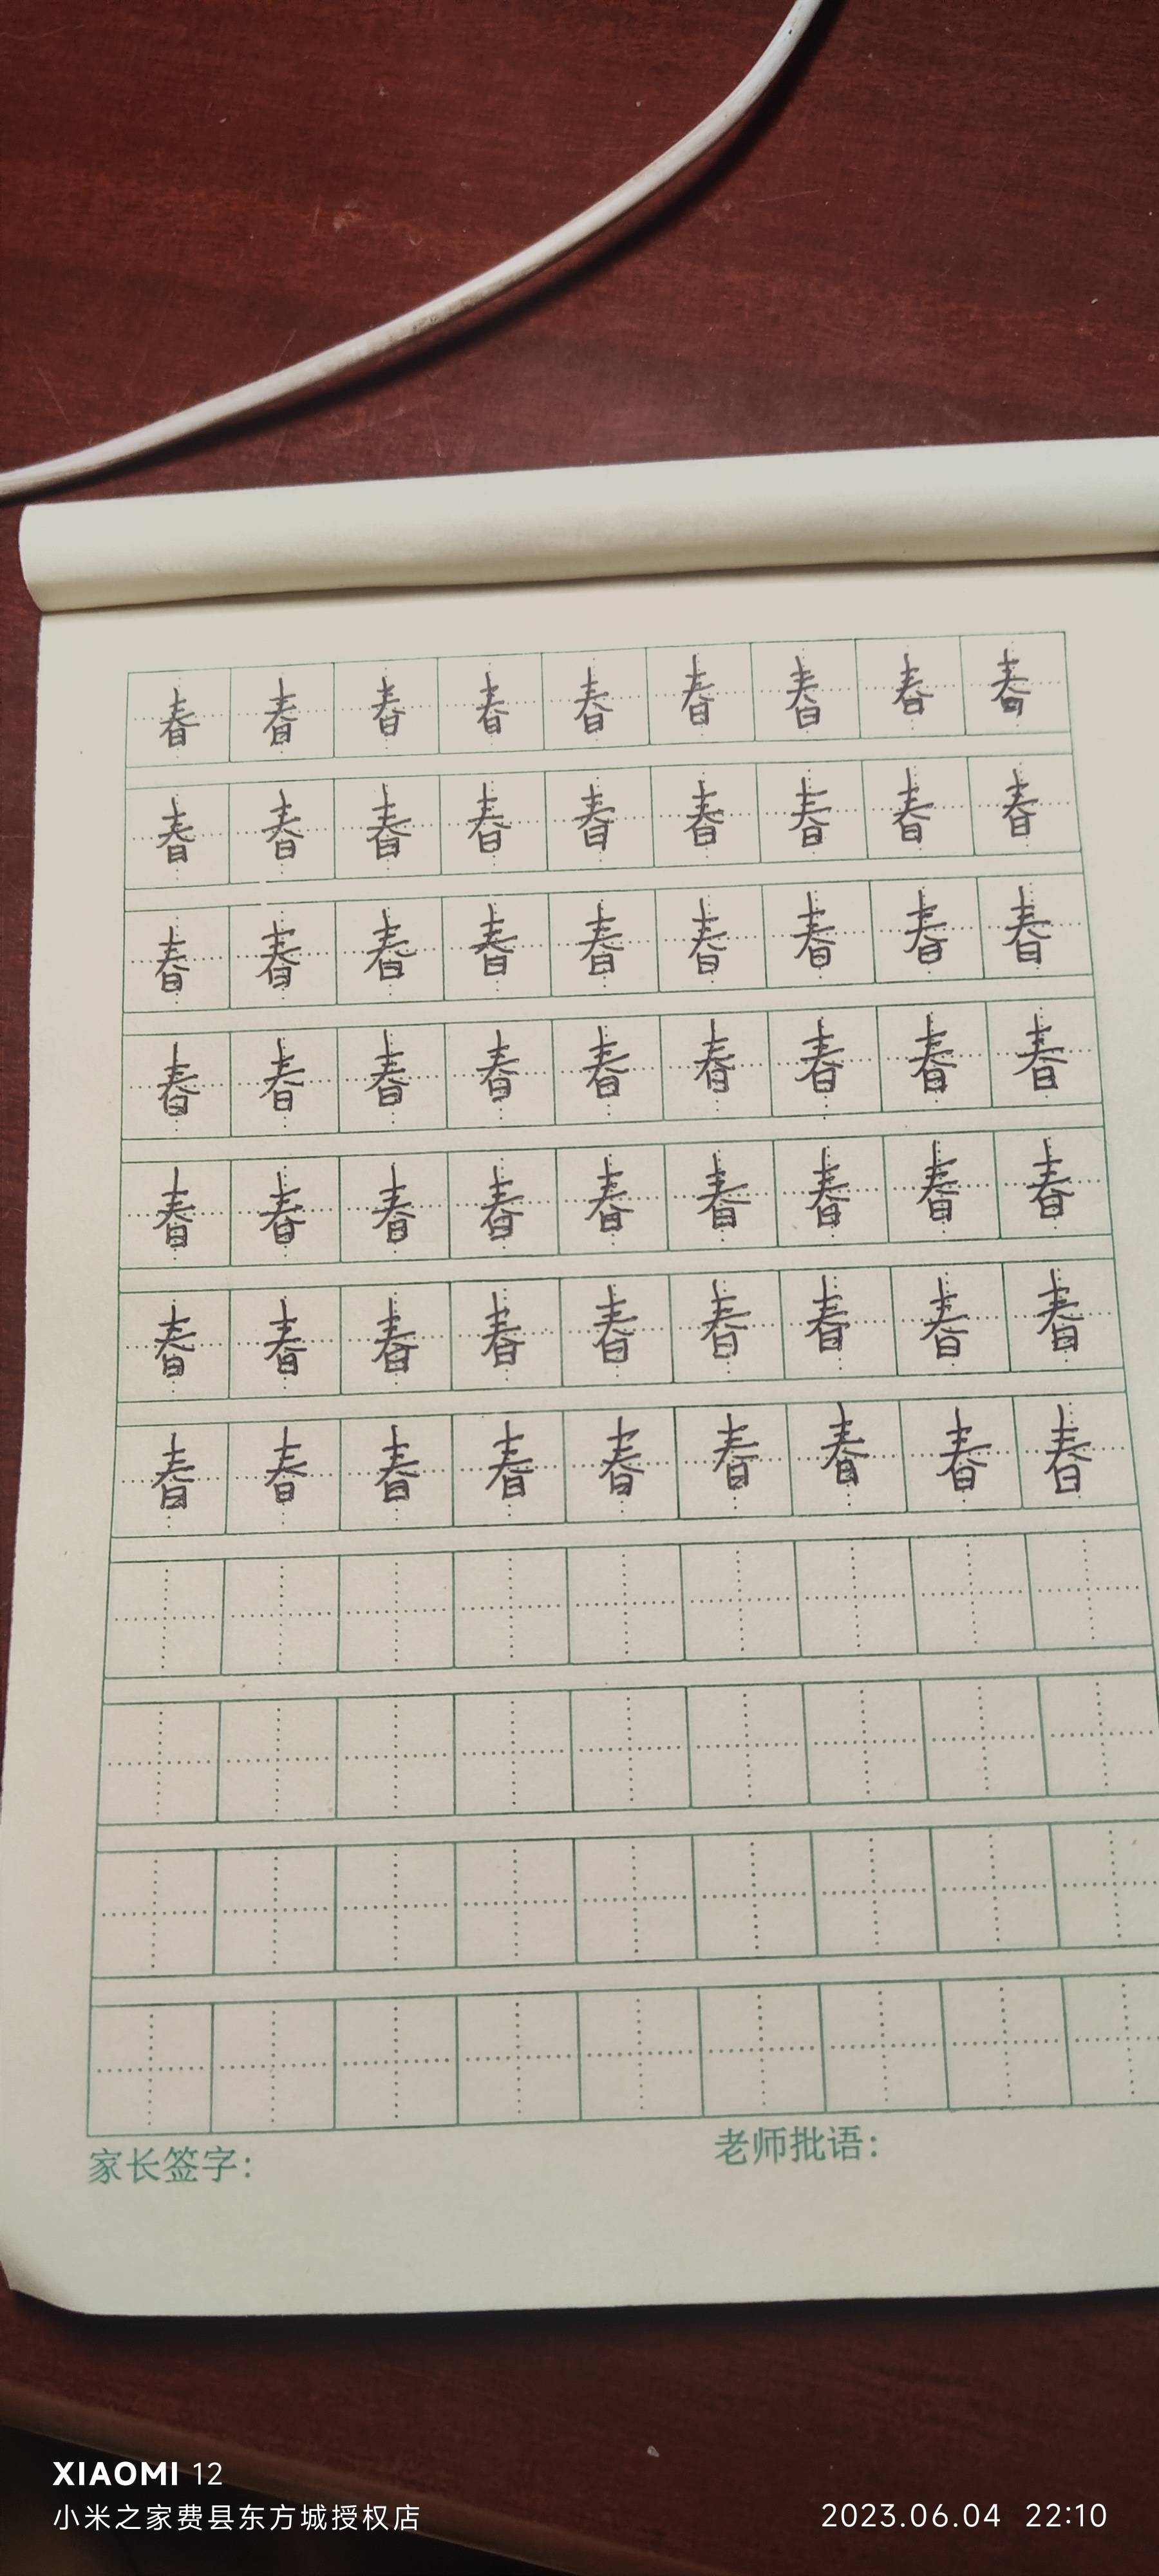 春春春春春春春春春
春春春春春春春春春
春春春春春春春春春
春春春春春春春春春
春春春春春春春春春
春春春春春春春春春
春春春春春春春春春
家长签字: 老师批语:
XIAOMI 12
小米之家费县东方城授权店 2023.06.04 22:10